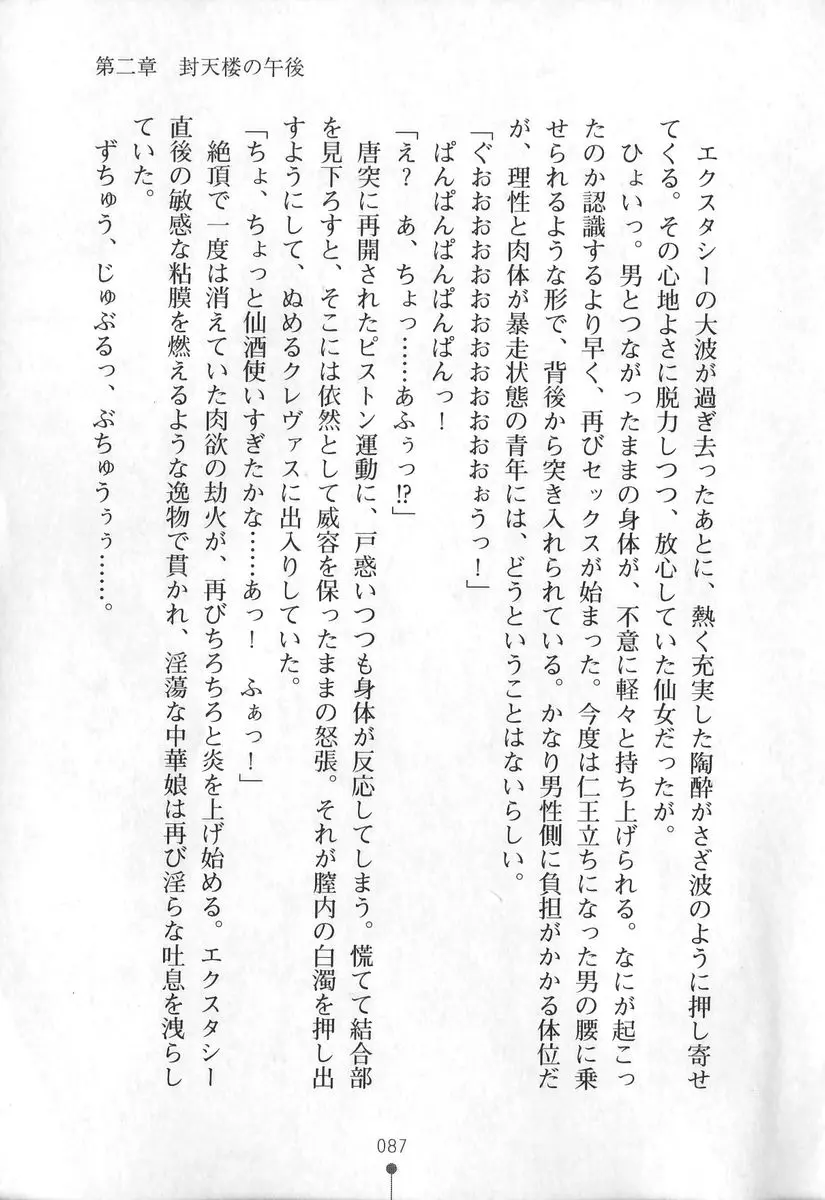 第二章　封天楼の午後
　エクスタシーの大波が過ぎ去ったあとに、熱く充実した陶酔がさざ波のように押し寄せ
てくる。その心地よさに脱力しつつ、放心していた仙女だったが。
　ひょいっ。男とつながったままの身体が、不意に軽々と持ち上げられる。なにが起こっ
たのか認識するより早く、再びセックスが始まった。今度は仁王立ちになった男の腰に乗
せられるような形で、背後から突き入れられている。かなり男性側に負担がかかる体位だ
が、理性と肉体が暴走状態の青年には、どうということはないらしい。
「ぐおおおおおおおおおおおおおぉうっ！」
　ぱんぱんぱんぱんぱんっ！
「え？　あ、ちょっ……あふぅっ!?」
　唐突に再開されたピストン運動に、戸惑いつつも身体が反応してしまう。慌てて結合部
を見下ろすと、そこには依然として威容を保ったままの怒張。それが膣内の白濁を押し出
すようにして、ぬめるクレヴァスに出入りしていた。
「ちょ、ちょっと仙酒使いすぎたかな……あっ！　ふぁっ！」
　絶頂で一度は消えていた肉欲の劫火が、再びちろちろと炎を上げ始める。エクスタシー
直後の敏感な粘膜を燃えるような逸物で貫かれ、淫蕩な中華娘は再び淫らな吐息を洩らし
ていた。
　ずちゅう、じゅぶるっ、ぶちゅうぅぅ……。
087